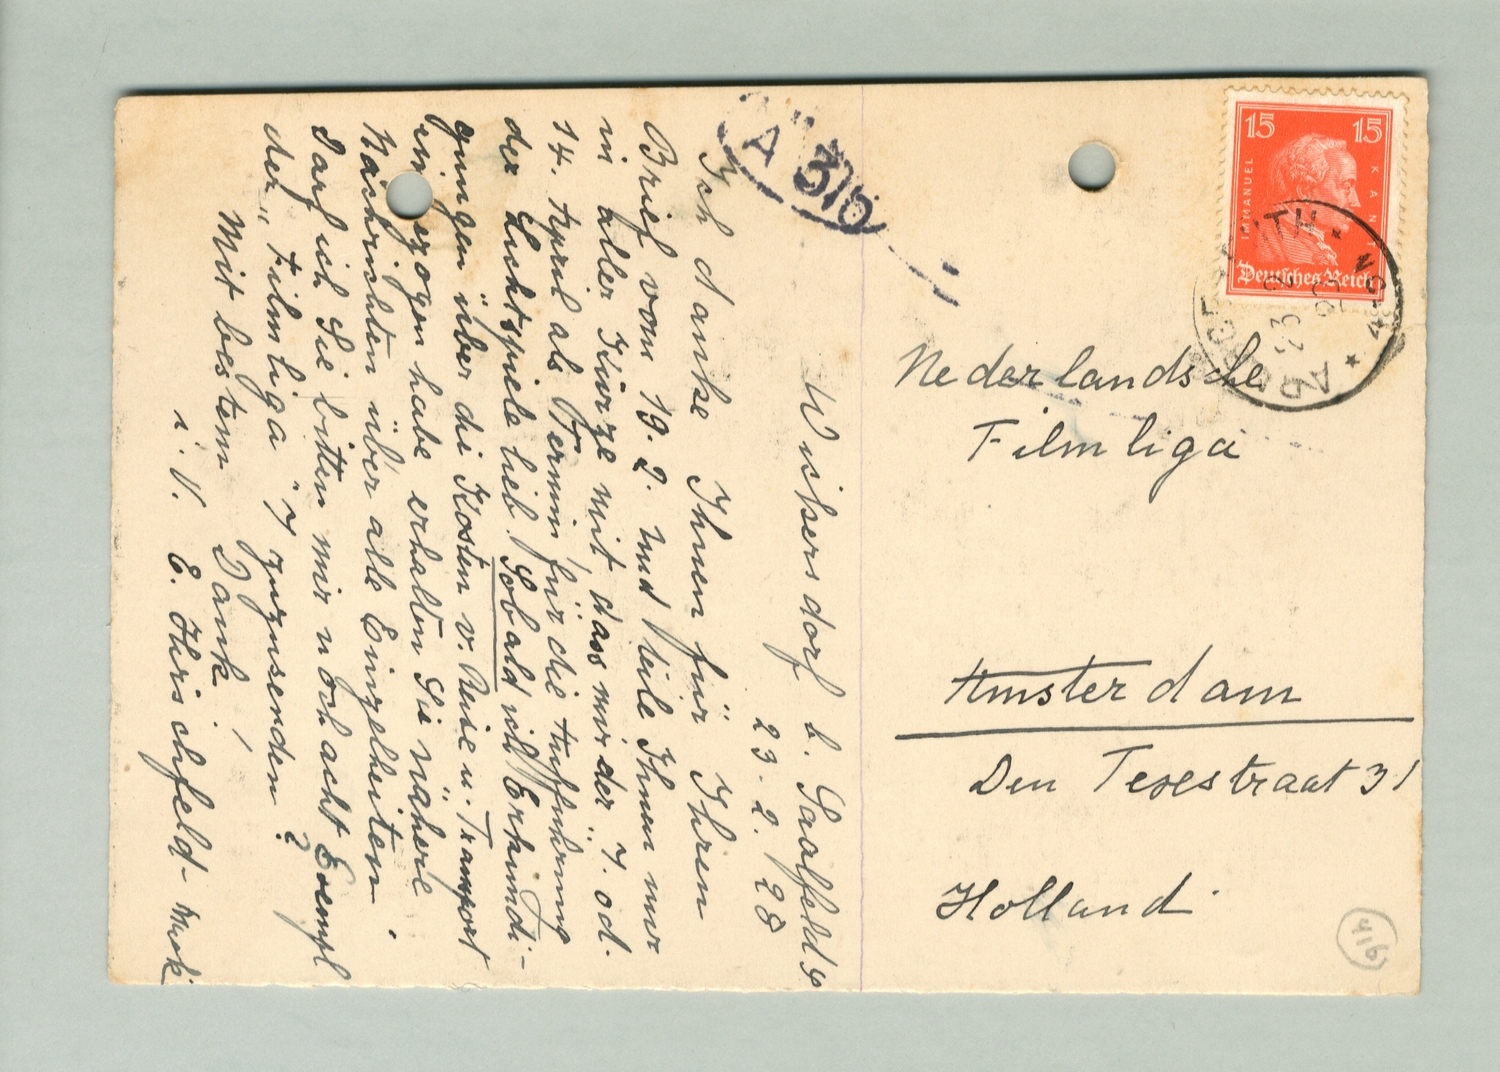 Wickersdorf b. Saalfeld S
23. 2. 28
Ich danke Ihnen für Ihren
Brief vom 19. 2. und teile Ihnen nur
in aller Kürze mit, dass mir der 7. od.
14. April als Termin für die Aufführung
der Lichtspiele lieb. Sobald ich Erkundi-
gungen über die Kosten v. Reise u. Transport
eingezogen habe erhalten Sie nähere
Nachrichten über alle Einzelheiten.
Darf ich Sie bitten mir noch acht Exempl
der „Filmliga" zuzusenden?
Mit bestem Dank!
i. V. E. Hirschfeld-Mack
A 316
15 15
IMMANUEL KANT
Deutsches Reich
Nederlandsche
Filmliga
Amsterdam
Den Texestraat 31
Holland
416